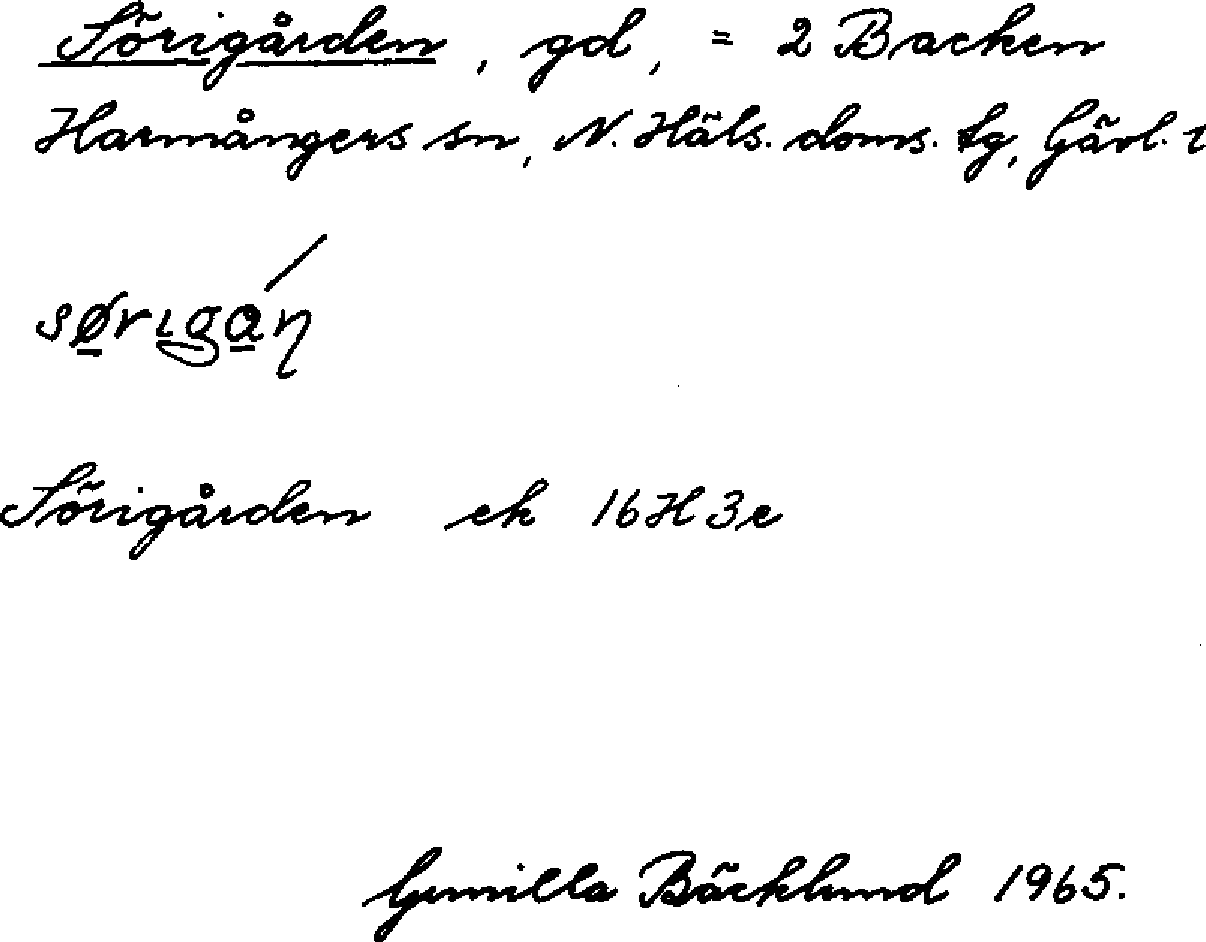 Sörigården, gd, = 2 Backen
Harmångers sn, N. Häls. doms. tg, Gävl. l
sørɩgán
Sörigården ek 16H3e
Gunilla Bäcklund 1965.